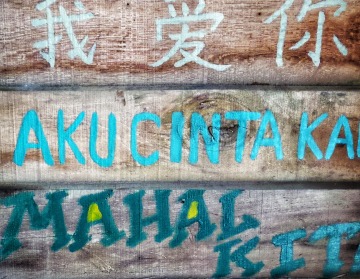 我爱你
AKU CINTA KA
MAHAL KITA